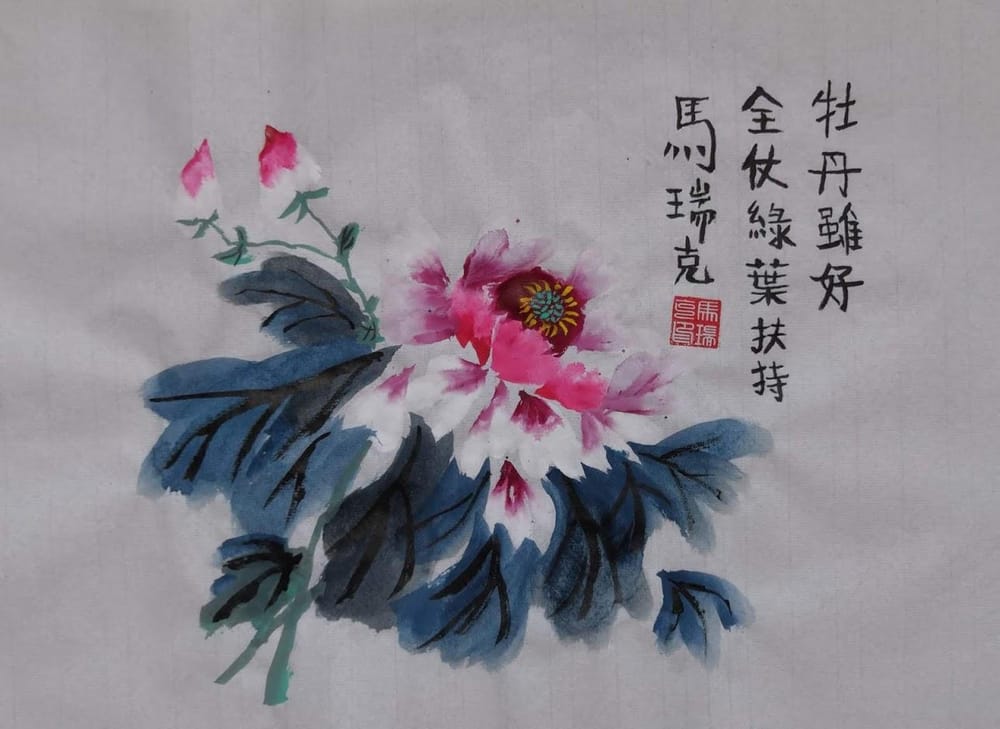 牡丹雖好
全仗綠葉扶持
馬瑞克
馬瑞